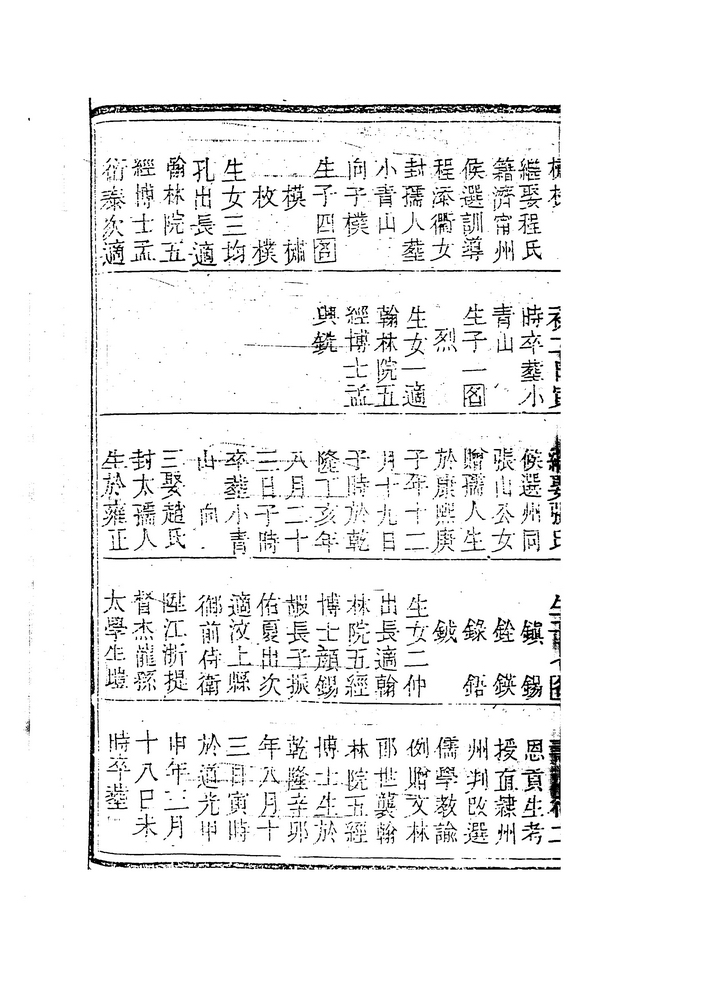 繼娶程氏
籍濟甯州
候選訓導
程添衢女
封孺人塟
小青山
向子樸
生子四
模 樠
枚 樸
生女三均
孔出長適
翰林院五
經博士孟
衍泰次適
時卒塟小
青山
生子一
烈
生女一適
翰林院五
經博士孟
興銑
繼娶張氏
候選州同
張山公女
贈孺人生
於康熙庚
子年十二
月十九日
子時於乾
隆丁亥年
八月二十
三日子時
卒塟小青
山 向
三娶趙氏
封太孺人
生於雍正
鎮 錫
銓 鍈
錄 鋙
鉞
生女二仲
出長適翰
林院五經
博士顏錫
嘏長子振
佑夏出次
適汶上縣
御前侍衛
陞江浙提
督杰龍孫
太學生塏
恩貢生考
授直隸州
州判改選
儒學教諭
例贈文林
郎世襲翰
林院五經
博士生於
乾隆辛卯
年八月十
三日寅時
於道光甲
申年二月
十八日未
時卒塟